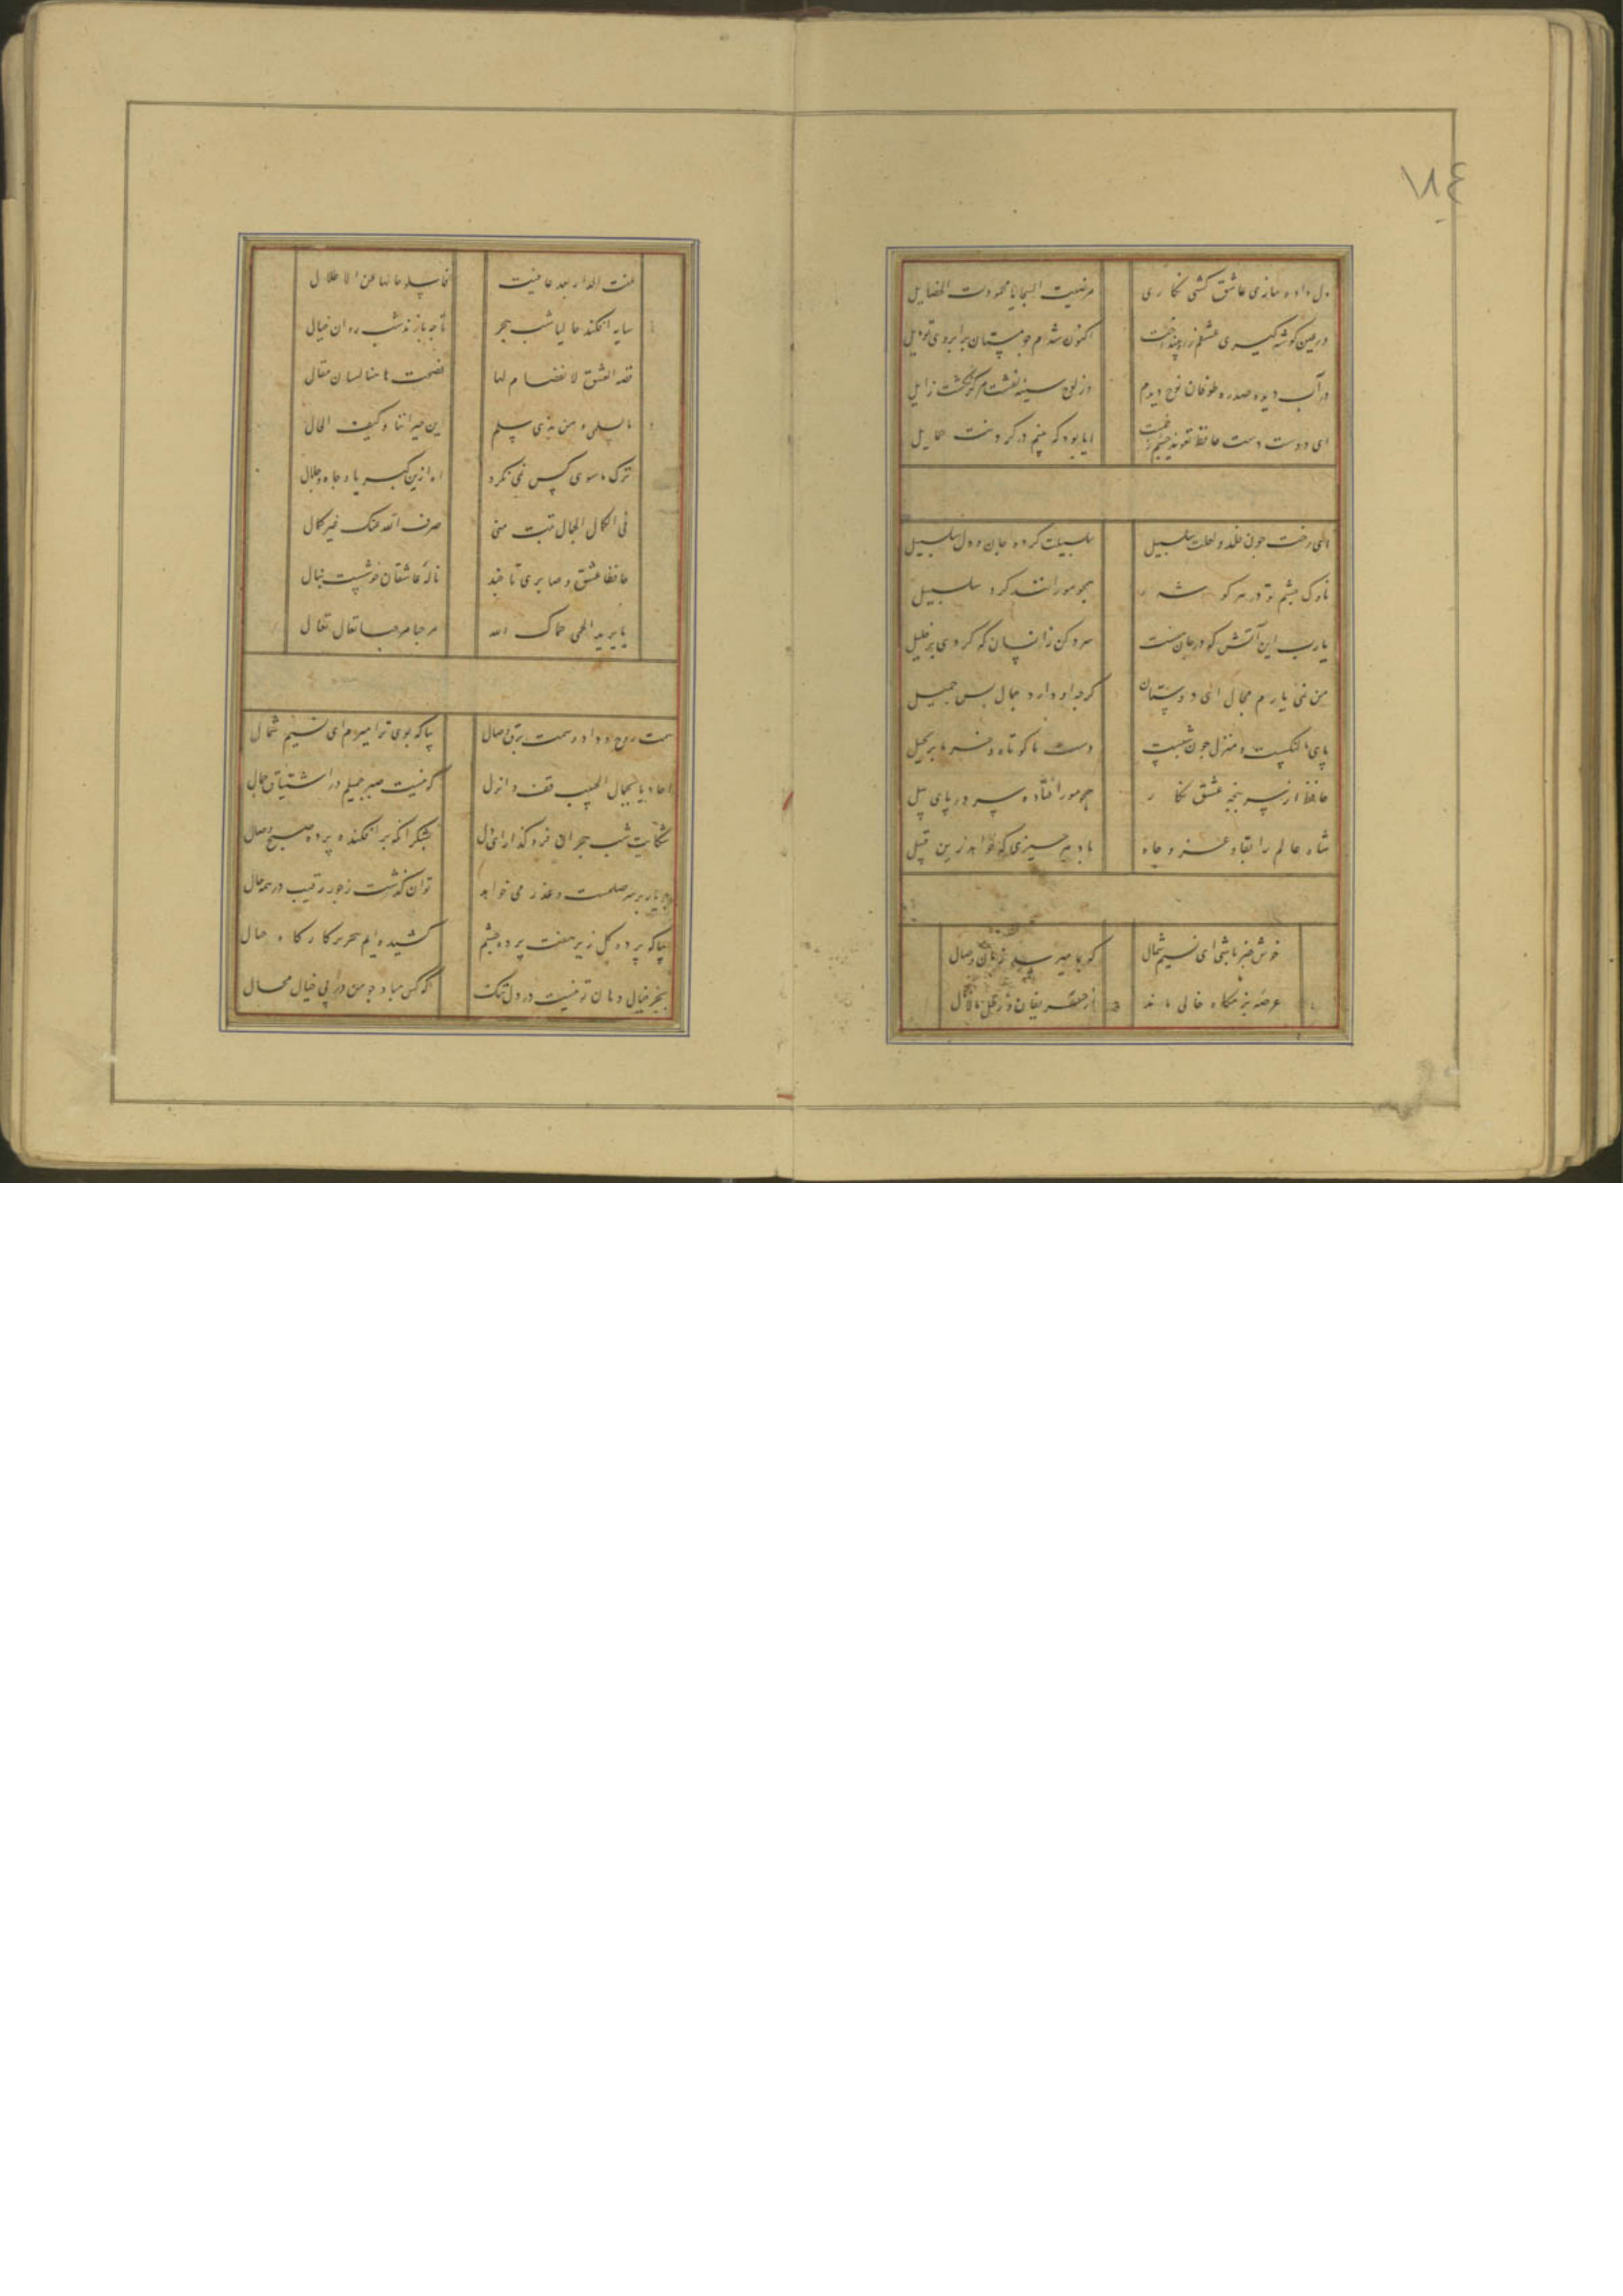 ١٨٤
دل داده‌ام بیاری عاشق کشی نکاری
مرضیت السجایا محمودت الخصایل
در عین کوشه کیری عشقم ز راه بینداخت
اکنون شدم جو مستان بر ابروی تو مایل
در آب دیده صدره طوفان نوح دیدم
وز لوح سینه نقشت هرکز نکشت زایل
ای دوست دست حافظ تعویذ جشم زخمست
ایا بود که بینم در کردنت حمایل
ای رخت جون خلد و لعلت سلسبیل
سلسبیلت کرده جان و دل سبیل
ناوک جشم تو در هر کوشه
همجو مور افتند کرد سلسبیل
یارب این آتش که در جان منست
سرد کن زانسان که کردی بر خلیل
من نمی یارم مجال ای دوستان
کرجه او دارد جمال بس جمیل
پای ما لنکست و منزل جون بهشت
دست ما کوتاه و خرما بر نخیل
حافظ از سر پنجه عشق نکار
همجو مور افتاده سر در پای پیل
شاه عالم را بقا و عز و جاه
باد هر جیزی که خواهد زین قبیل
خوش خبر باشی ای نسیم شمال
که بما میرسد زمان وصال
عرصه بزمکاه خالی ماند
از حریفان و رطل مالامال
عفت الدار بعد عافیت
فاسلوا حالها عن الاطلال
سایه افکند حالیا شب هجر
تا جه بازند شب روان خیال
قصه العشق لا انفصام لها
فصمت ها هنا لسان مقال
مالسلمی و من بذی سلم
این جیراننا و کیف الحال
ترک ما سوی کس نمی نکرد
اه ازین کبریا و جاه و جلال
فی الکمال الجمال نبت منی
صرف الله عنک عین کمال
حافظا عشق و صابری تا چند
نالهٔ عاشقان خوشست بنال
یا برید الحمی حماک الله
مرحبا مرحبا تعال تعال
شمت روح وداد و شمت برق وصال
بیا که بوی ترا میرم ای نسیم شمال
احادیا بجمال الحبیب قف و انزل
که نیست صبر جمیلم در اشتیاق جمال
شکایت شب هجران فرو کذار ای دل
بشکر انکه برافکنده پرده صبح وصال
جو یار بر سر صلحست و عذر می خواهد
توان کذشت ز جور رقیب در همه حال
بیا که پرده کل ریز هفت پرده جشم
کشیده‌ایم بتحریر کارکاه خیال
بجز خیال دهان تو نیست در دل تنک
که کس مباد جو من در پی خیال محال